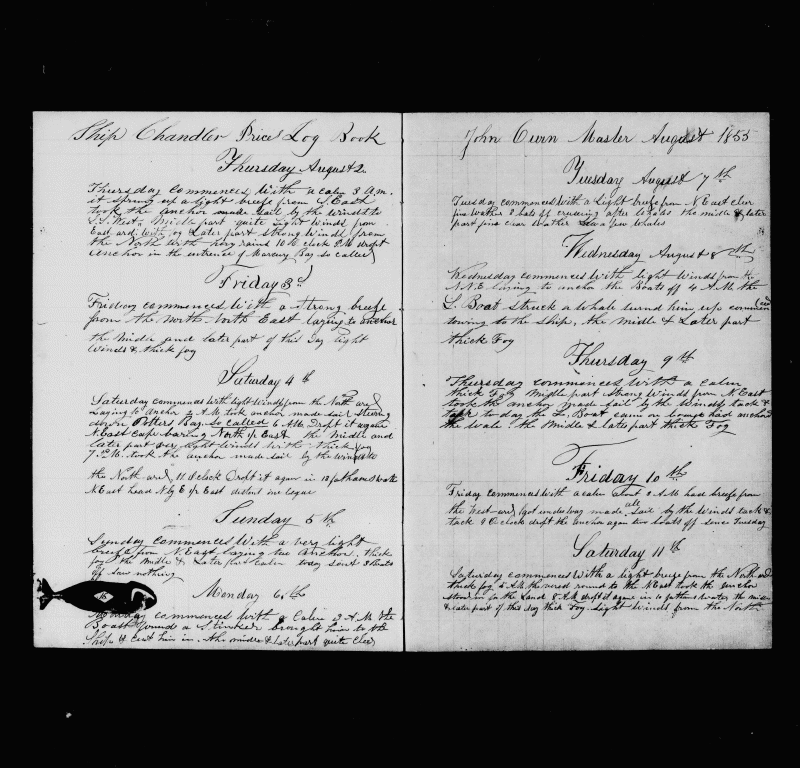 Ship Chandler Price's Log Book
Thursday August 2.
Thursday commences with a calm 3 A.M.
it sprung up a light breefe from S. East
took the anchor made sail by the wind to
S. S. West, Middle part quite Light winds from
East ard; with fog Later part strong winds from
the North with hevy rains 10 O clock P.M dropt
anchor in the entrence of Marcury Bay so called
Friday 3d
Friday commences with a strong breefe
from the North North East laying to anchor
the Middle and later part of this day light
winds & thick fog
Saturday 4 th
Saturday commences with light winds from the North ard
Laying to Anchor 2 A.M. took anchor made sail
down Potters Bay so called 6 A.M. Dropt it again
N. East cape baring North by East the Middle and
later part very light winds with thick fog
7 P.M. took the anchor made sail by the wind to
the North ard, 11 O clock Dropt it again in 12 fathams water
N East head N by E 1/2 East distent one legue
Sunday 5 th
Sunday commences with a very light
breefe from N. East laying too Anchor. thick
fog the Middle & Later part Calm today sent 3 boats
off saw nothing
Monday 6th
Monday commences with a Calm 3 A.M the
Boats found a Stinker brought him to the
Ship & cut him in. the middle & late part quite Clear
John Cwin Master August 1855
Tuesday August 7 th
Tuesday commences with a light breefe from N. East clear
fine wether 2 bots off cruseing after whales the middle & later
part fine clear wather saw a few whales
Wednesday August 8 th
Wednesday commences with light winds from the
N.N.E. Laying to anchor the Boats off 4 A.M. the
L. Boat struck a whale turnd him up commenced
towing to the Ship, the middle & Later part
thick Fog
Thursday 9 th
Thursday commences with a calm
thick Fog Middle part strong winds from N. East
took the anchor made sail by the winds tack &
tack to day the L. Boat came on board had anchord
the whale the Middle & late part thick Fog
Friday 10 th.
Friday commences with a calm about 2 A.M had breefe from
the West ard got underway made all sail by the winds tack &
tack 9 O clock dropt the anchor again two boats off since Tuesday
Saturday 11 th
Saturday commences with a light breefe from the North ard
thick fog 5 A.M. the wind round to the East took the anchor
stood in for the Land 8 A.M droft it again in 10 fathams water the midle
& later part of this day thick Fog. Light winds from the North